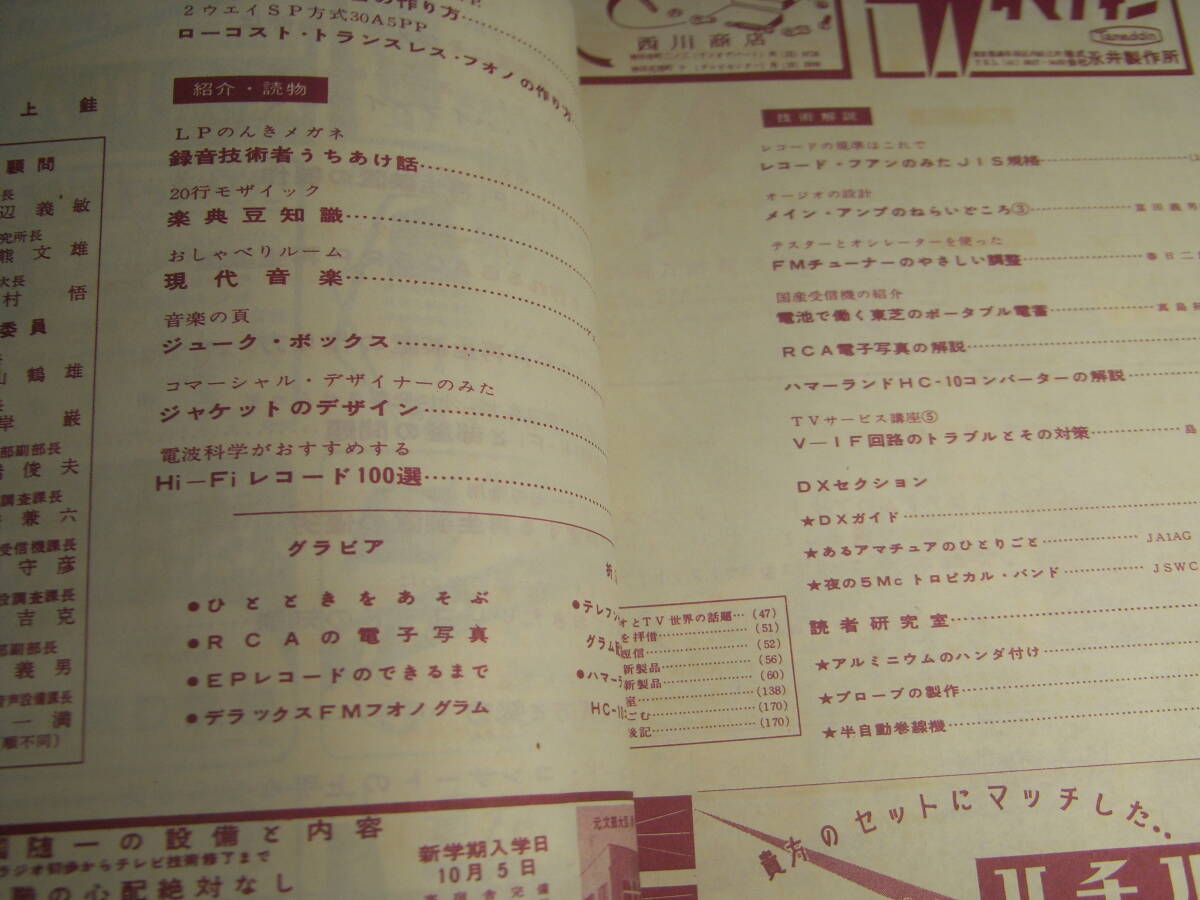 の作り方
2ウエイSP方式30A5PP
ローコスト・トランスレス・フオノの作り方
紹介・読物
LPのんきメガネ
録音技術者うちあけ話
20行モザイック
楽典豆知識
おしゃべりルーム
現代音楽
音楽の頁
ジューク・ボックス
コマーシャル・デザイナーのみた
ジャケットのデザイン
電波科学がおすすめする
Hi-Fiレコード100選
グラビア
●ひとときをあそぶ
●RCAの電子写真
●EPレコードのできるまで
●デラックスFMフオノグラム
●テレフン
グラム
●ハマー
HC-1
上 鮭
顧問
長
辺 義 敏
究所長
熊 文 雄
次長
村 悟
委員
山 鶴 雄
岸 巌
部副部長
俊 夫
調査課長
兼 六
受信機課長
守 彦
設調査課長
吉 克
部副部長
義 男
音声設備課長
一 満
順不同)
随一の設備と内容
ラジオ初歩からテレビ技術修了まで
の心配絶対なし
新学期入学日
10月5日
西川商店
永井製作所
技術解説
レコードの規準はこれで
レコード・フアンのみたJIS規格
オージオの設計
メイン・アンプのねらいどころ③
テスターとオシレーターを使った
FMチューナーのやさしい調整
春日二
国産受信機の紹介
電池で働く東芝のポータブル電蓄
真島
RCA電子写真の解説
ハマーランドHC-10コンバーターの解説
TVサービス講座⑤
V-IF回路のトラブルとその対策
島
DXセクション
★DXガイド
★あるアマチュアのひとりごと JA1AG
★夜の5Mcトロピカル・バンド JSWC
読者研究室
★アルミニウムのハンダ付け
★プローブの製作
★半自動巻線機
オとTV世界の話題…(47)
を拝借(51)
短信(52)
新製品(56)
新製品(60)
室(138)
ごむ(170)
後記(170)
貴方のセットにマッチした‥